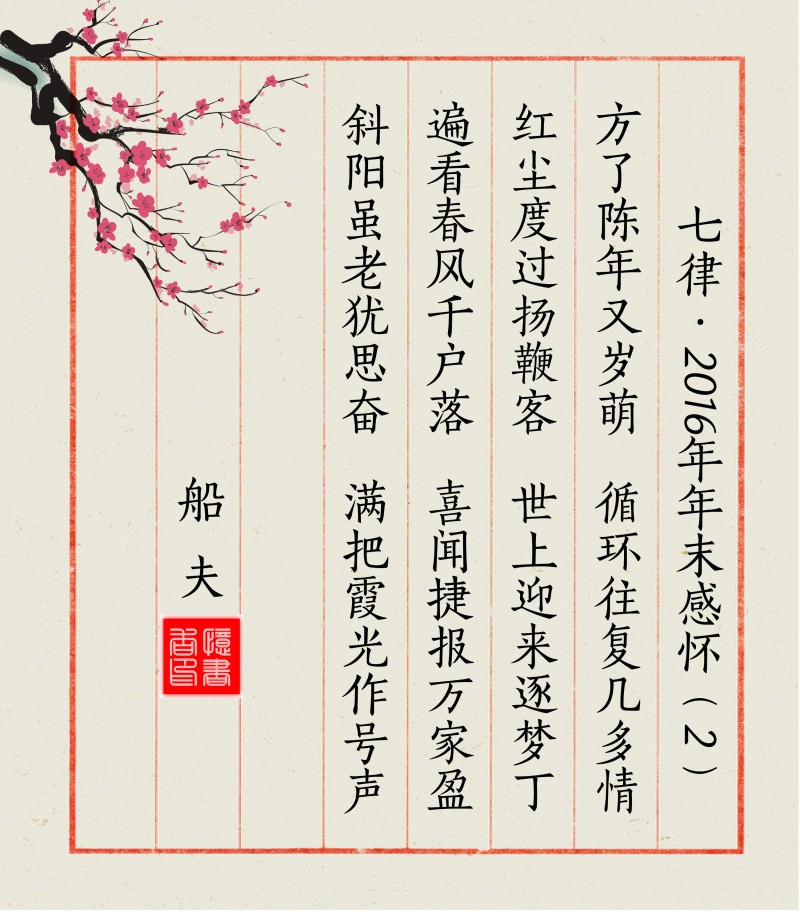 七律·2016年年末感怀（2）
方了陈年又岁萌　循环往复几多情
红尘度过扬鞭客　世上迎来逐梦丁
遍看春风千户落　喜闻捷报万家盈
斜阳虽老犹思奋　满把霞光作号声
船夫